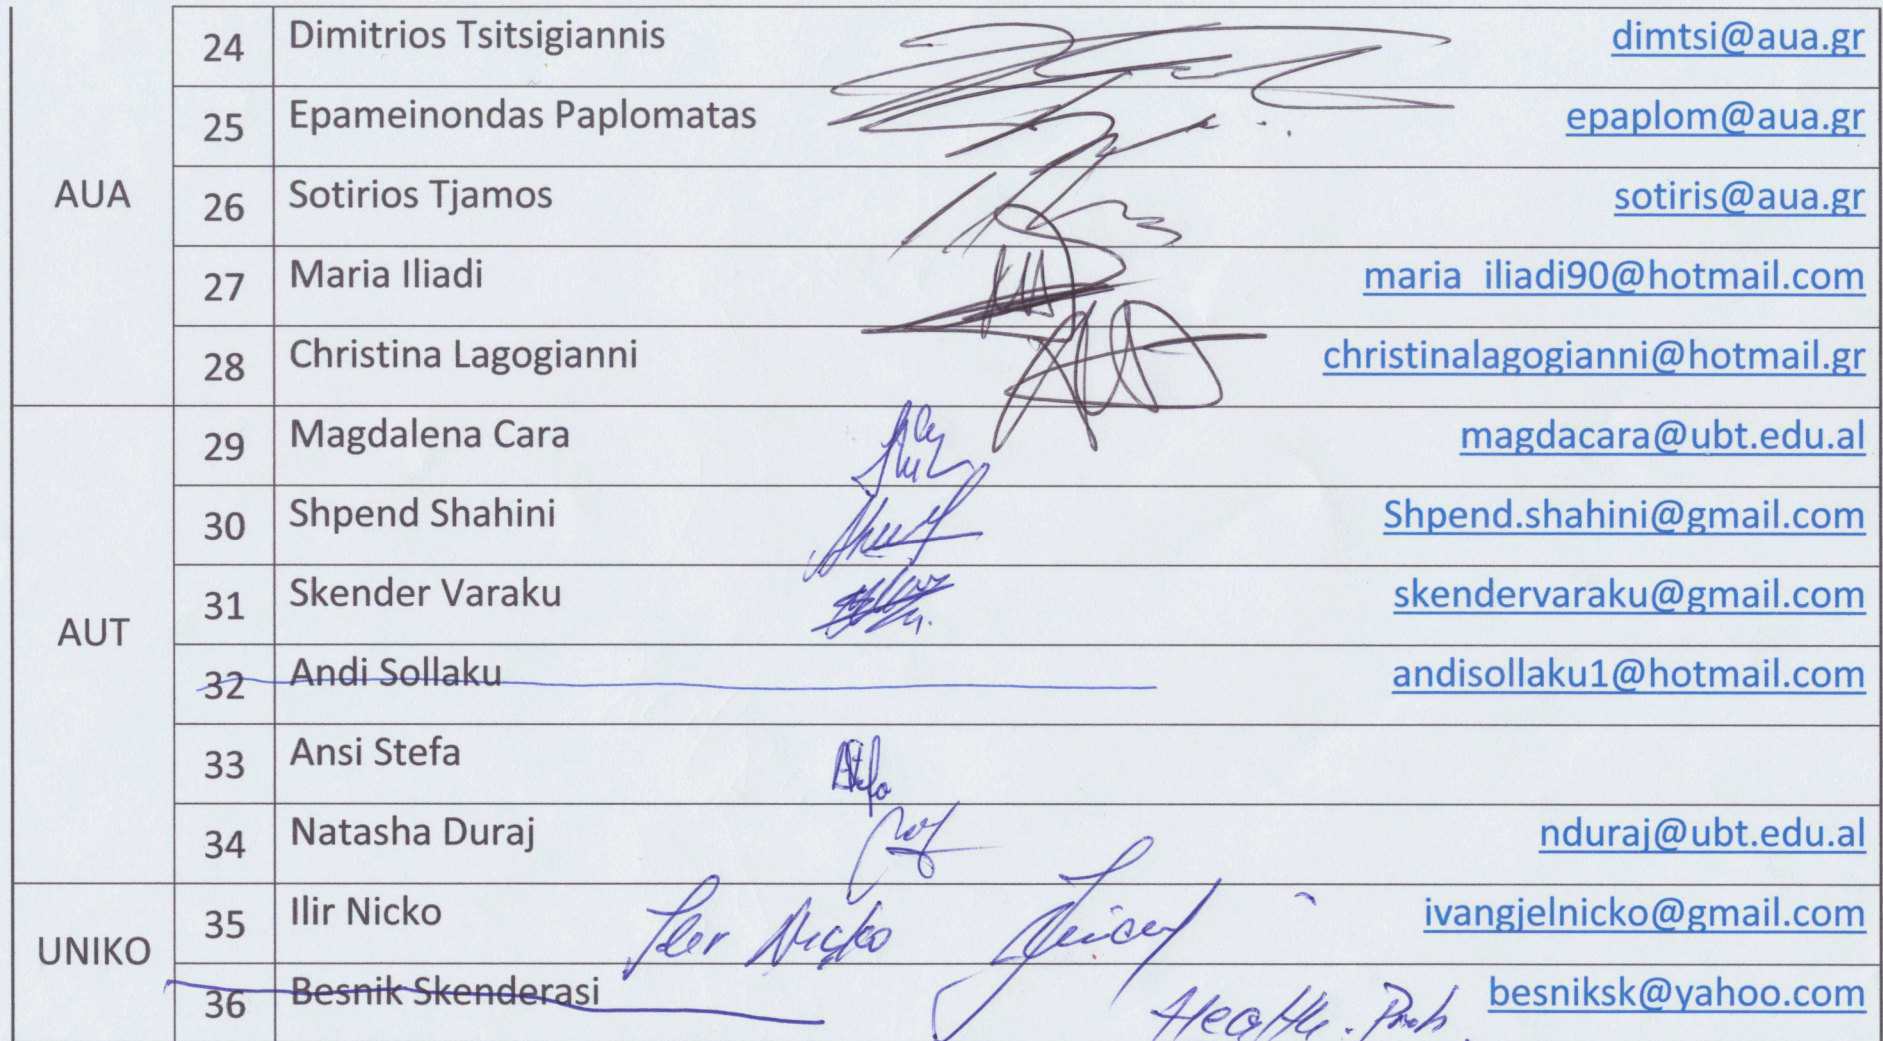 24 Dimitrios Tsitsigiannis dimtsi@aua.gr
25 Epameinondas Paplomatas epaplom@aua.gr
AUA
26 Sotirios Tjamos sotiris@aua.gr
27 Maria Iliadi maria_iliadi90@hotmail.com
28 Christina Lagogianni christinalagogianni@hotmail.gr
29 Magdalena Cara magdacara@ubt.edu.al
30 Shpend Shahini Shpend.shahini@gmail.com
31 Skender Varaku skendervaraku@gmail.com
AUT
32 Andi Sollaku andisollaku1@hotmail.com
33 Ansi Stefa
34 Natasha Duraj nduraj@ubt.edu.al
35 Ilir Nicko Ilir Nicko ivangjelnicko@gmail.com
UNIKO
36 Besnik Skenderasi besniksk@yahoo.com